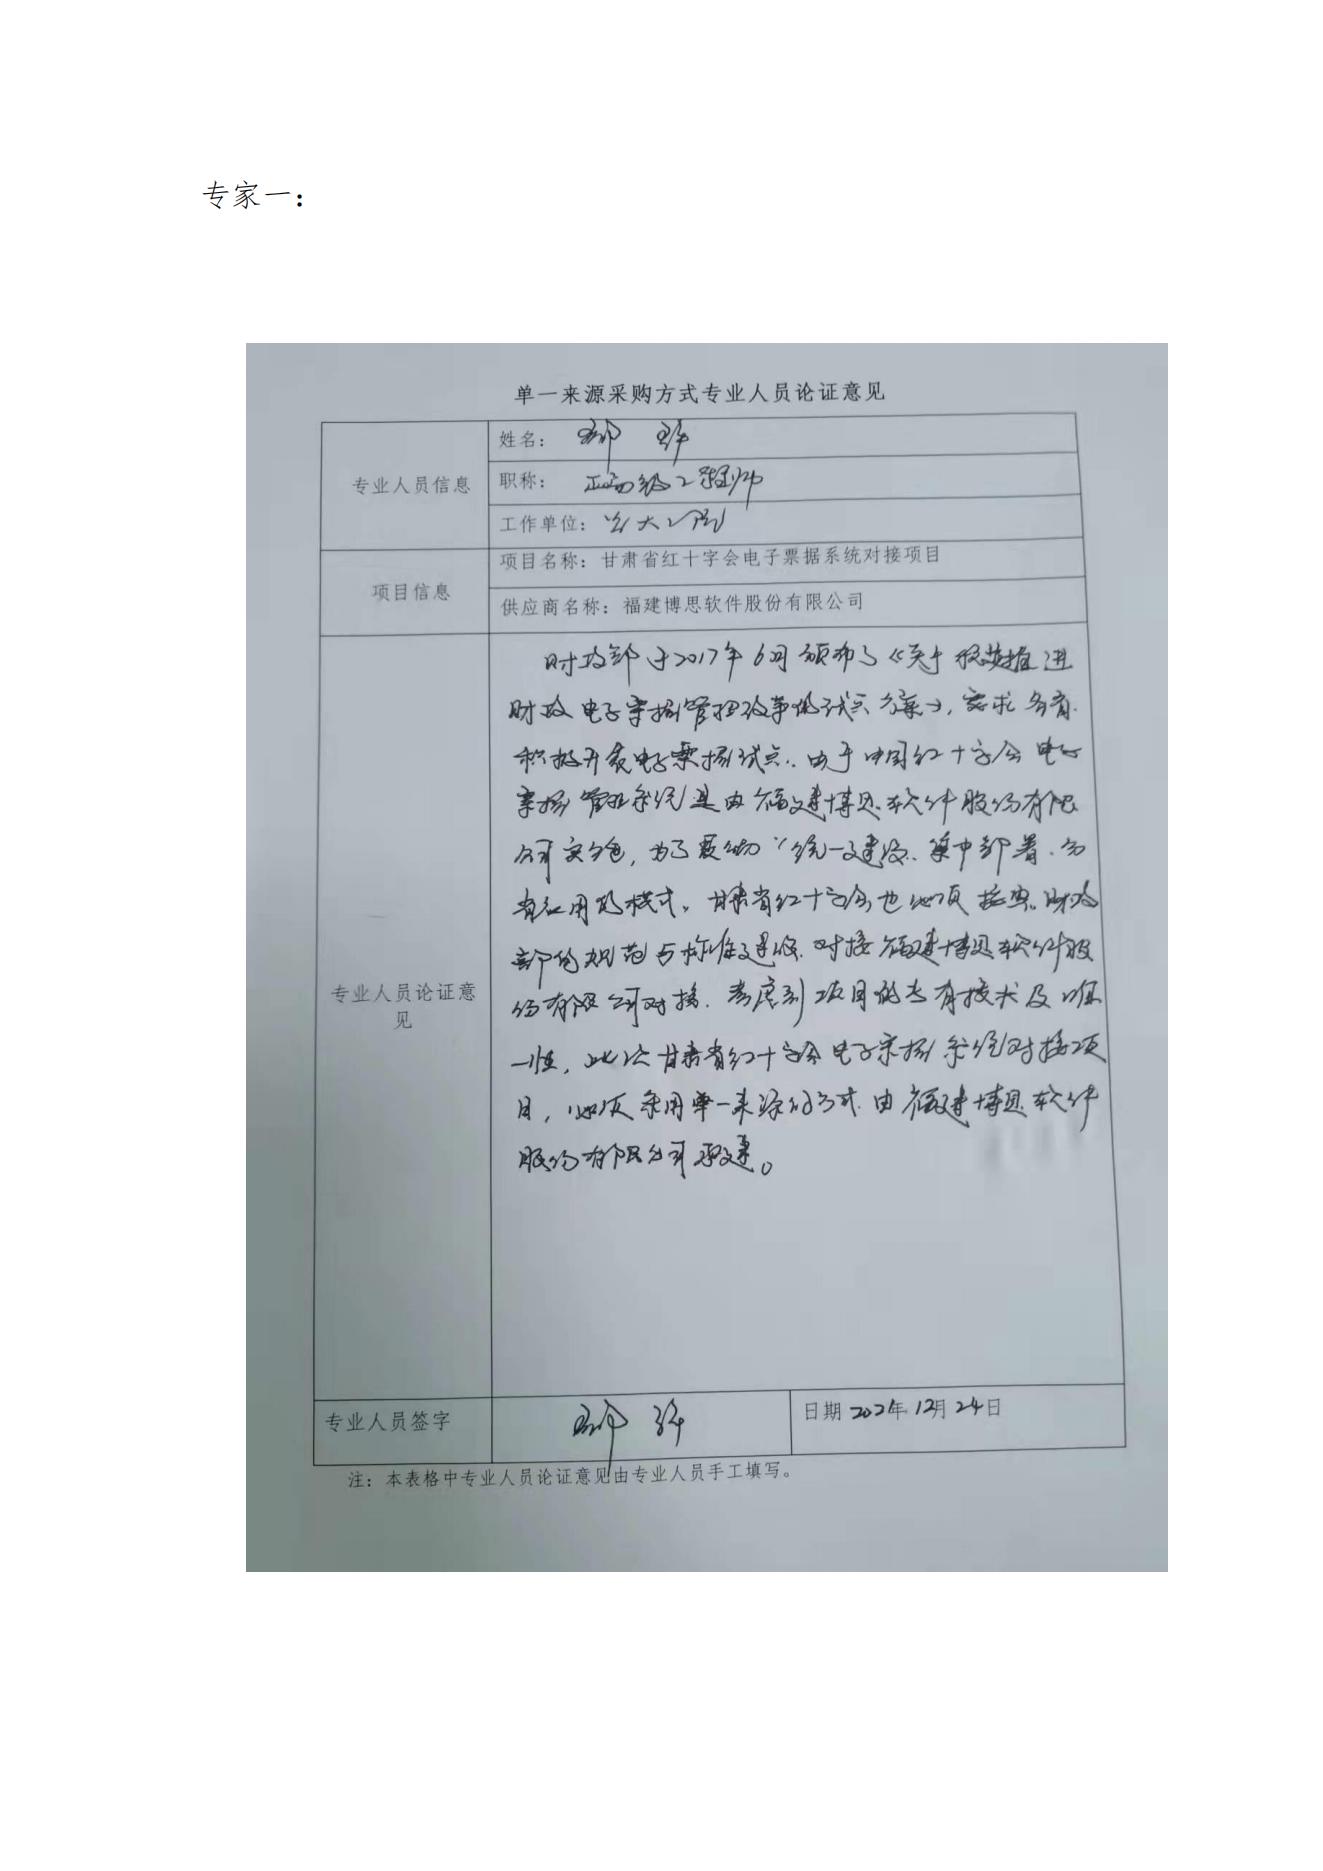 专家一：
单一来源采购方式专业人员论证意见
专业人员信息
姓名：
职称：正高级工程师
工作单位：
项目信息
项目名称：甘肃省红十字会电子票据系统对接项目
供应商名称：福建博思软件股份有限公司
专业人员论证意
见
财政部于2017年6月颁布了《关于稳步推进
财政电子票据管理改革的试点方案》，要求各省
积极开展电子票据试点。由于中国红十字会电子
票据管理系统是由福建博思软件股份有限
公司承建，为了 “统一建设、集中部署、分
省应用的模式。甘肃省红十字会也必须按照财政
部的规范与标准建设 对接福建博思软件股
份有限公司对接．考虑到项目的专有技术及唯
一性，此次甘肃省红十字会电子票据系统对接项
目，必须采用单一来源的方式由福建博思软件
股份有限公司承建。
专业人员签字
日期2021年12月24日
注：本表格中专业人员论证意见由专业人员手工填写。